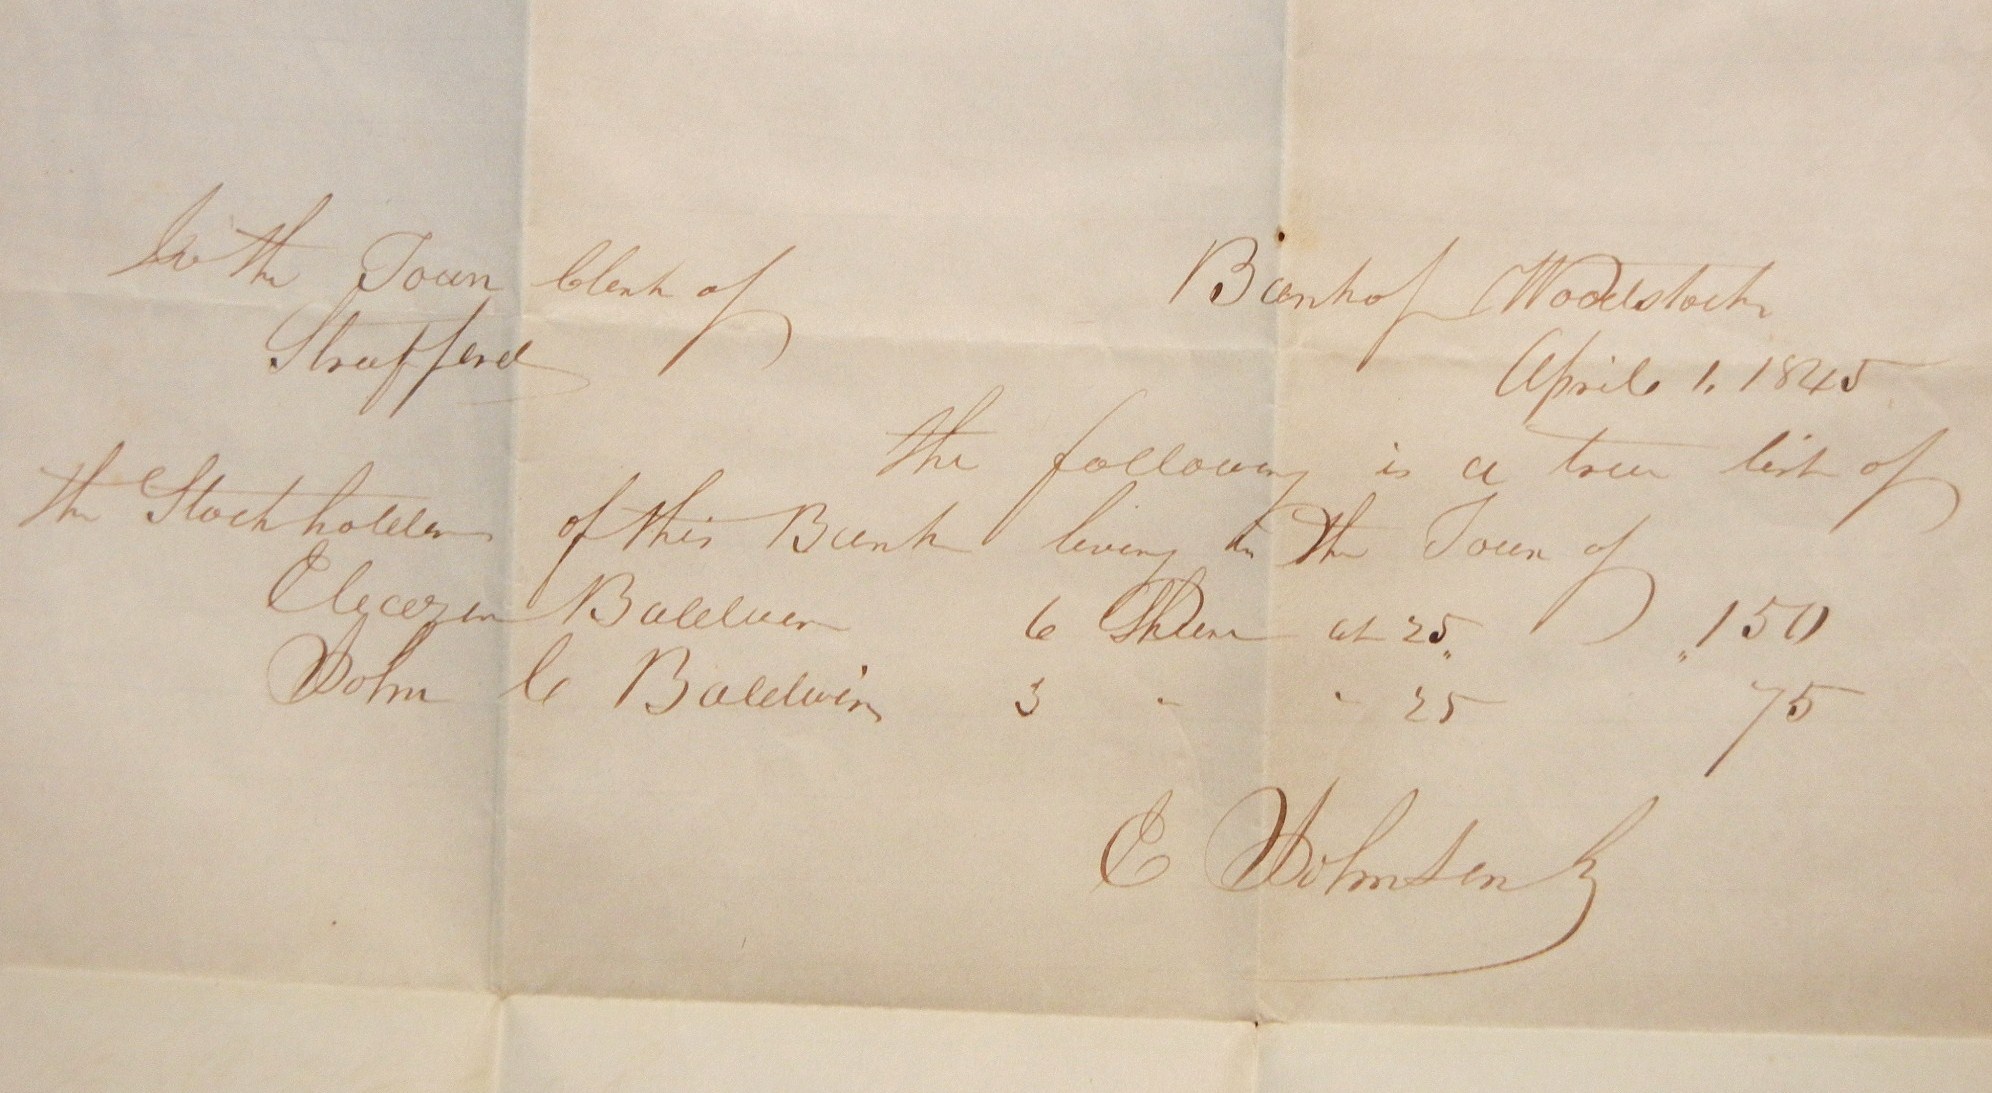 To the Town Clerk of
Strafford
Bank of Woodstock
April 1. 1845
the following is a true list of
the Stockholders of this Bank living in the Town of
Eleazer Baldwin 6 Shares at 25 „ „ 150
John C Baldwin 3 " " 25 75
E Johnson